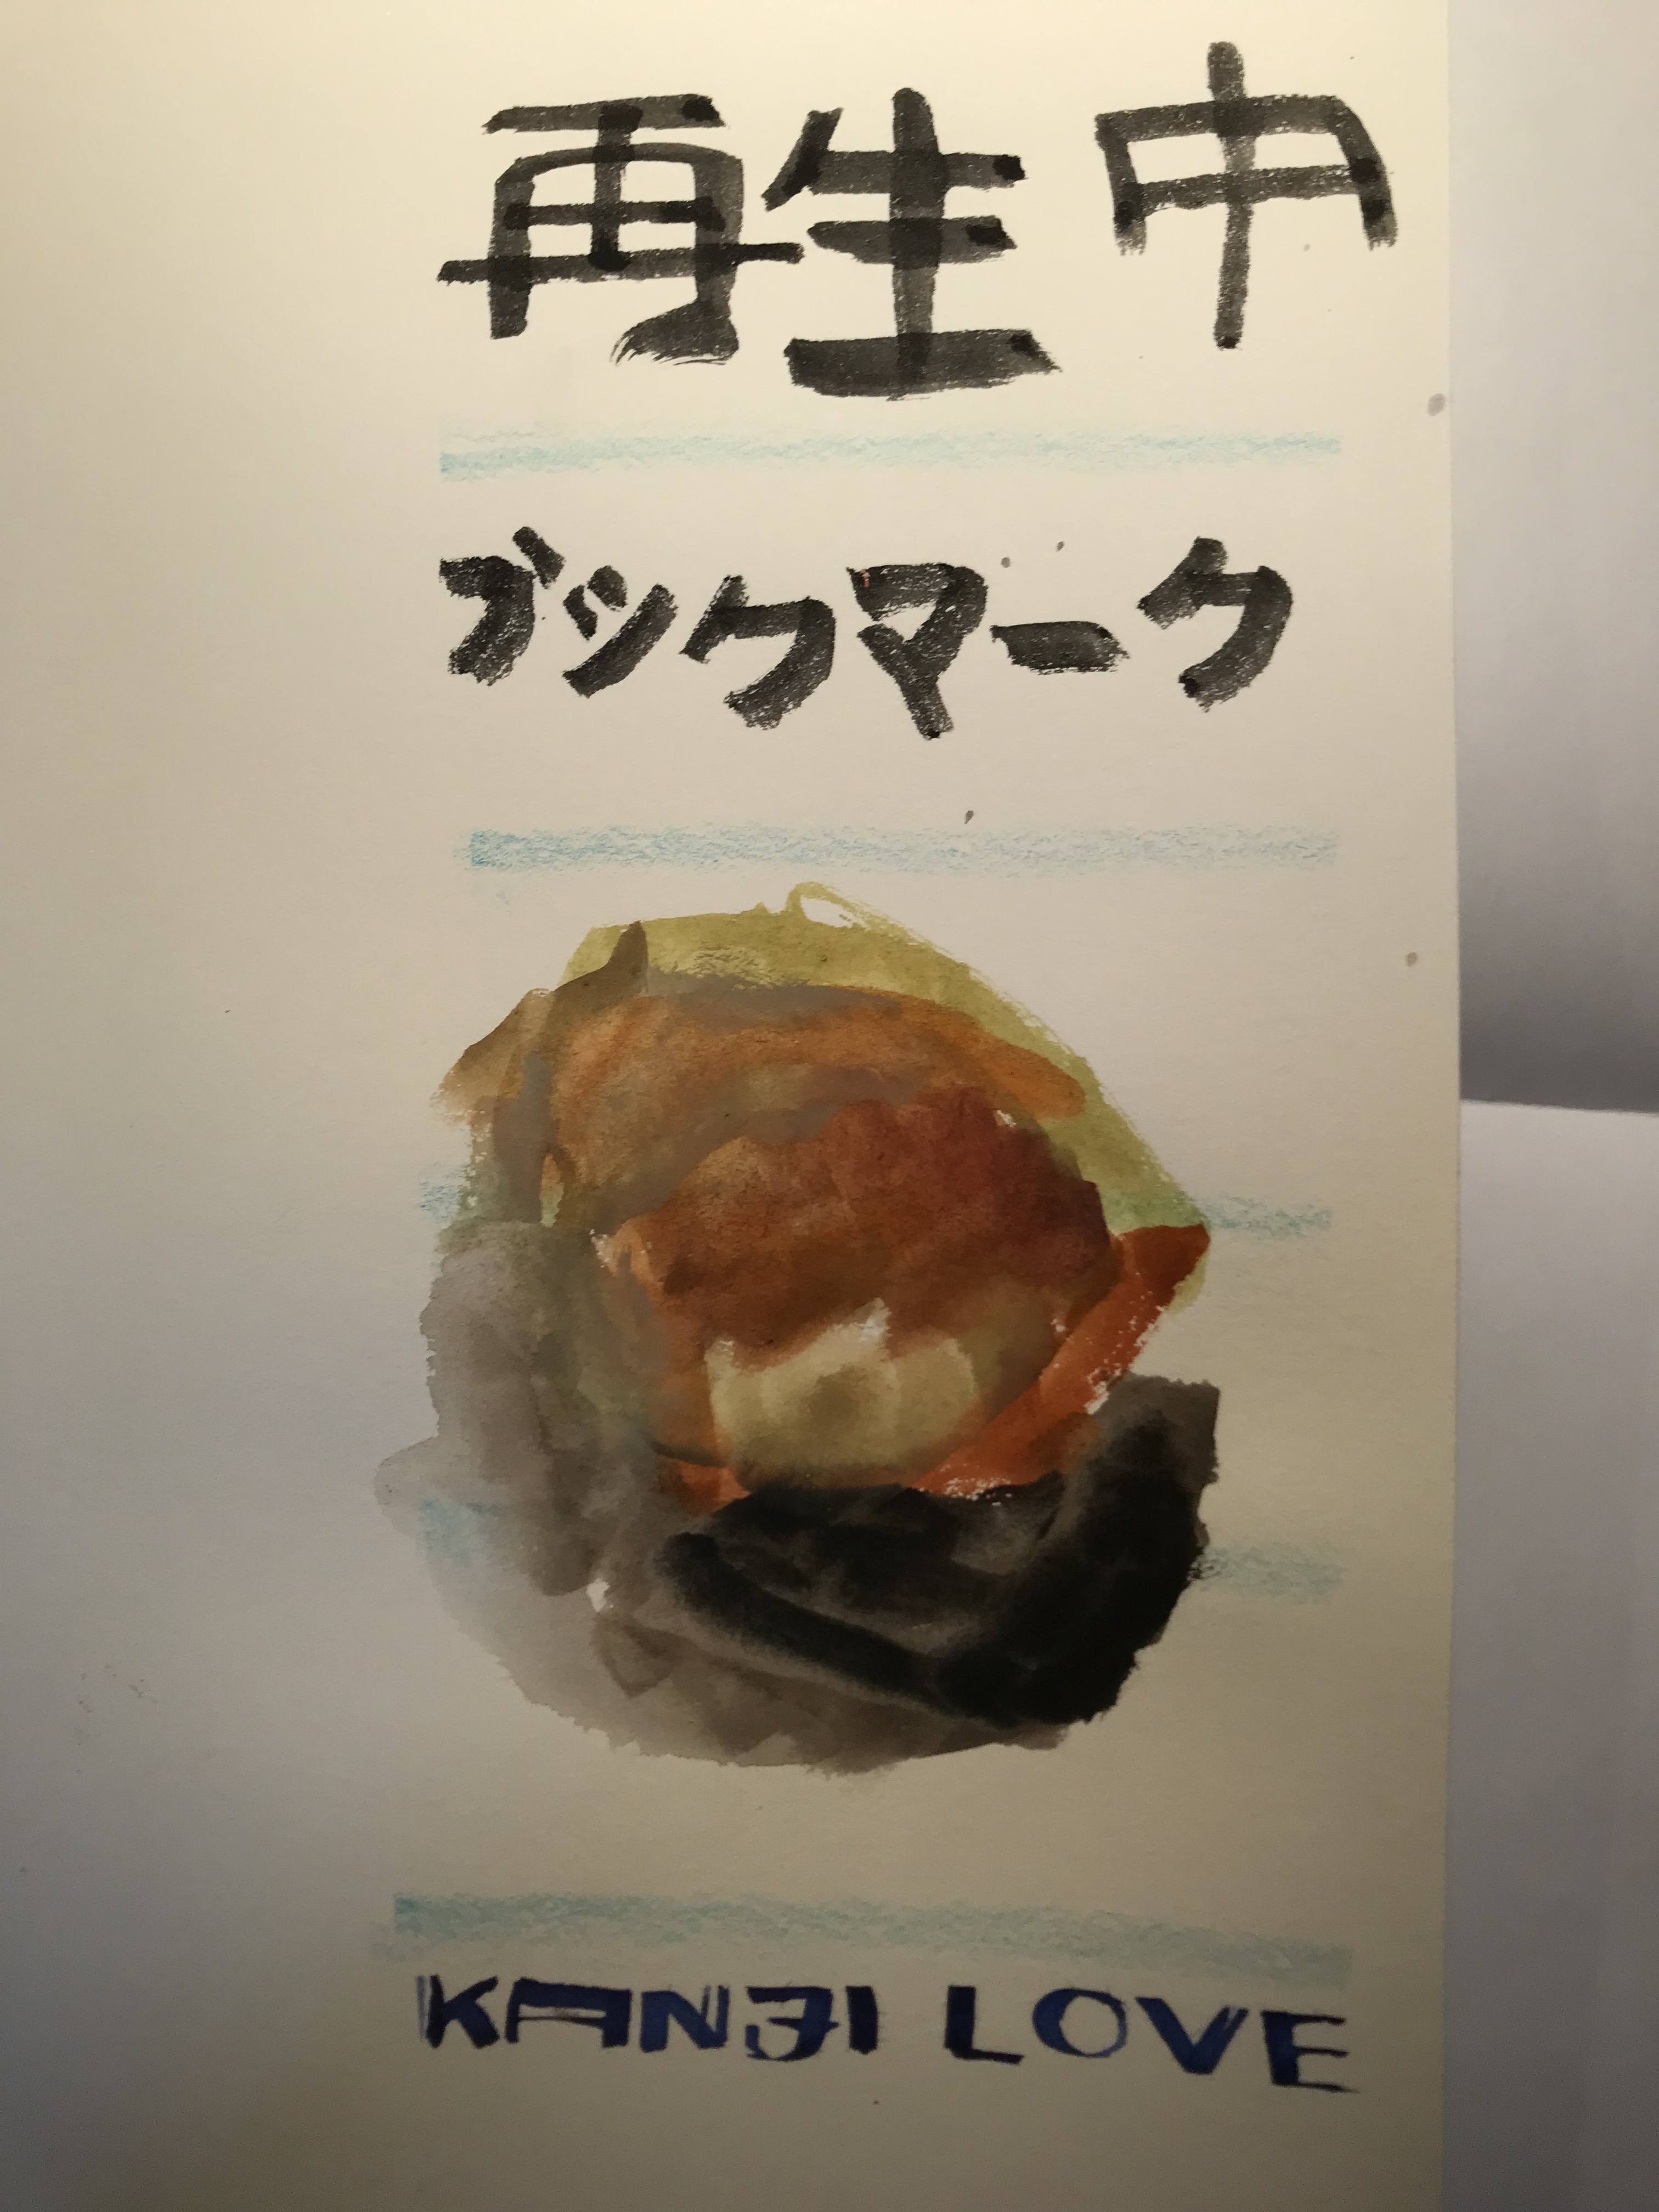 再生中
ブックマーク
KANJI LOVE